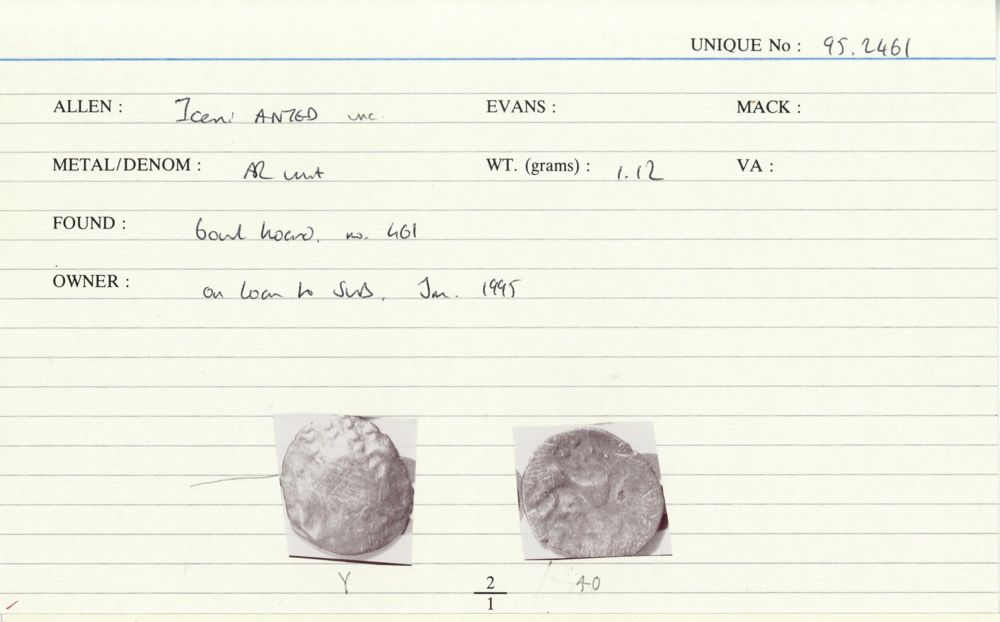 UNIQUE No : 95.2461
ALLEN : Iceni ANTED unc. EVANS : MACK :
METAL/DENOM : AR unit WT. (grams) : 1.12 VA :
FOUND : bowl hoard, no. 461
OWNER : on loan to Jan. 1995
Y 2/1 40